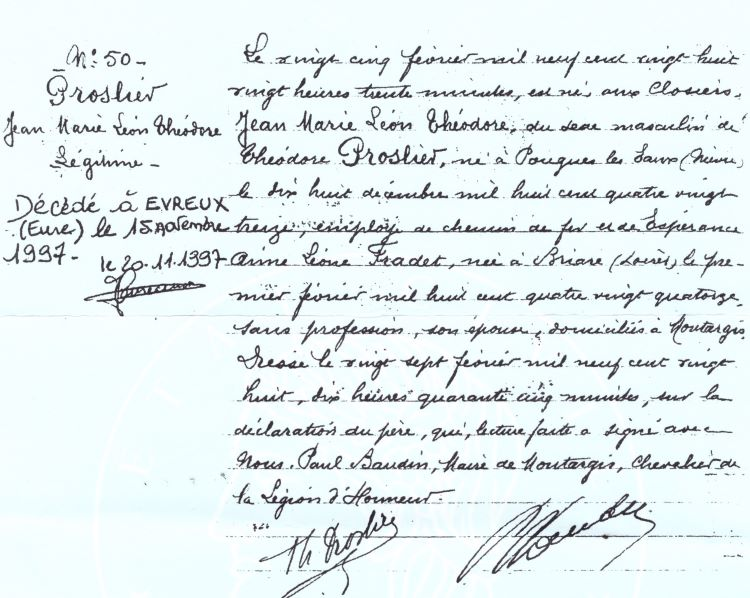 N° 50 -
Proslier
Jean Marie Léon Théodore
Légitime -
Décédé à EVREUX
(Eure) le 15 novembre
1997 -
le 20.11.1997
Le vingt cinq février mil neuf cent vingt huit
vingt heures trente minutes, est né, aux Closiers,
Jean Marie Léon Théodore, du sexe masculin de
Théodore Proslier, né à Pougues les Eaux (Nièvre)
le dix huit décembre mil huit cent quatre vingt
treize, employé de chemin de fer et de Espérance
Anne Léone Fradet, née à Briare (Loiret) le pre-
mier février mil huit cent quatre vingt quatorze,
sans profession, son épouse, domiciliés à Montargis.
Dressé le vingt sept février mil neuf cent vingt
huit, dix heures quarante cinq minutes, sur la
déclaration du père, qui, lecture faite a signé avec
Nous. Paul Baudin, Maire de Montargis, Chevalier de
la Légion d'Honneur
Th Proslier